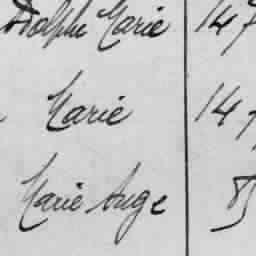 Adolphe Marie 147
Marie 147
Marie Ange 85